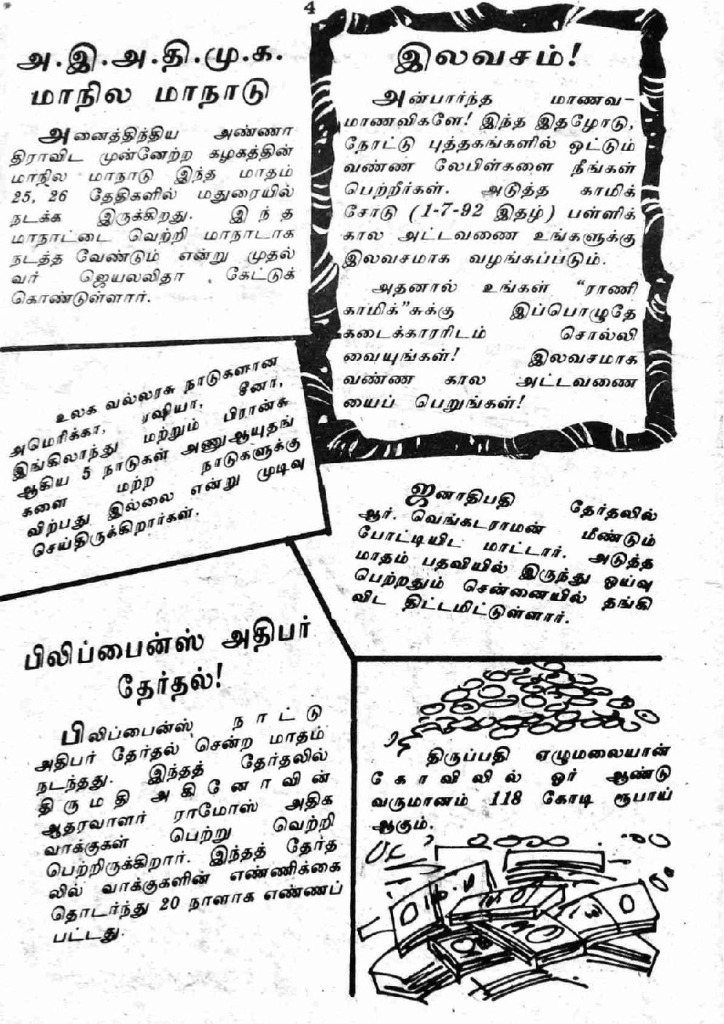 4
அ.இ.அ.தி.மு.க.
மாநில மாநாடு
அனைத்திந்திய அண்ணா
திராவிட முன்னேற்ற கழகத்தின்
மாநில மாநாடு இந்த மாதம்
25, 26 தேதிகளில் மதுரையில்
நடக்க இருக்கிறது. இந்த
மாநாட்டை வெற்றி மாநாடாக
நடத்த வேண்டும் என்று முதல்
வர் ஜெயலலிதா கேட்டுக்
கொண்டுள்ளார்.
இலவசம்!
அன்பார்ந்த மாணவ-
மாணவிகளே! இந்த இதழோடு,
நோட்டு புத்தகங்களில் ஒட்டும்
வண்ண லேபிள்களை நீங்கள்
பெற்றீர்கள். அடுத்த காமிக்
சோடு (1-7-92 இதழ்) பள்ளிக்
கால அட்டவணை உங்களுக்கு
இலவசமாக வழங்கப்படும்.
அதனால் உங்கள் "ராணி
காமிக்"சுக்கு இப்பொழுதே
கடைக்காரரிடம் சொல்லி
வையுங்கள்! இலவசமாக
வண்ண கால அட்டவணை
யைப் பெறுங்கள்!
உலக வல்லரசு நாடுகளான
அமெரிக்கா, ரஷியா, சீனா,
இங்கிலாந்து மற்றும் பிரான்சு
ஆகிய 5 நாடுகள் அணுஆயுதங்
களை மற்ற நாடுகளுக்கு
விற்பது இல்லை என்று முடிவு
செய்திருக்கிறார்கள்.
ஜனாதிபதி தேர்தலில்
ஆர். வெங்கடராமன் மீண்டும்
போட்டியிட மாட்டார். அடுத்த
மாதம் பதவியில் இருந்து ஓய்வு
பெற்றதும் சென்னையில் தங்கி
விட திட்டமிட்டுள்ளார்.
பிலிப்பைன்ஸ் அதிபர்
தேர்தல்!
பிலிப்பைன்ஸ் நாட்டு
அதிபர் தேர்தல் சென்ற மாதம்
நடந்தது. இந்தத் தேர்தலில்
திருமதி அகினோவின்
ஆதரவாளர் ராமோஸ் அதிக
வாக்குகள் பெற்று வெற்றி
பெற்றிருக்கிறார். இந்தத் தேர்த
லில் வாக்குகளின் எண்ணிக்கை
தொடர்ந்து 20 நாளாக எண்ணப்
பட்டது.
திருப்பதி ஏழுமலையான்
கோவிலில் ஓர் ஆண்டு
வருமானம் 118 கோடி ரூபாய்
ஆகும்.